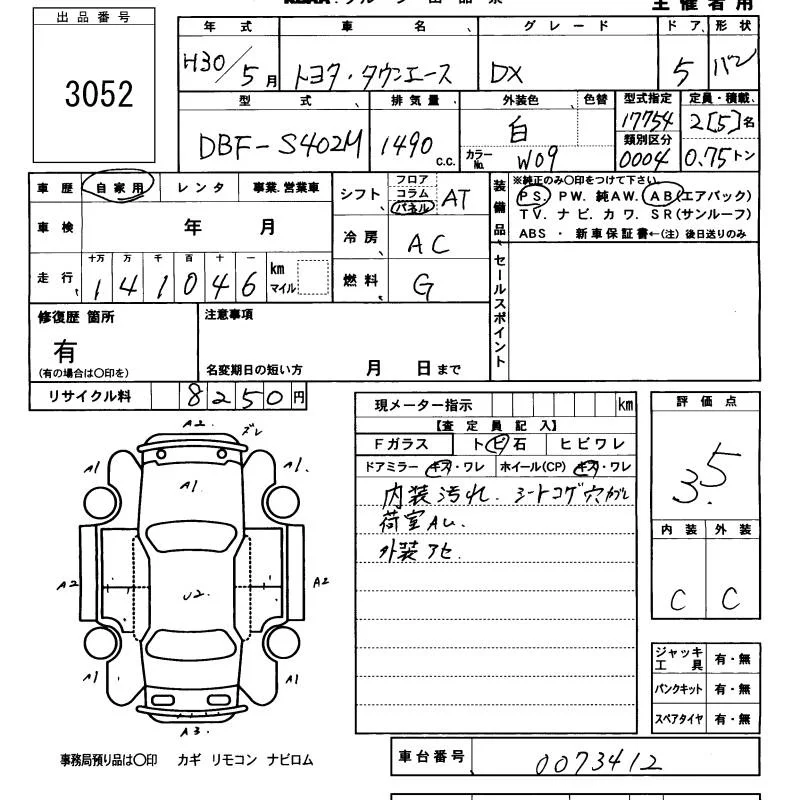 主催者用
出品番号
3052
年式 車名 グレード ドア 形状
H30/5月 トヨタ・タウンエース DX 5 バン
型式 排気量 外装色 色替 型式指定 定員・積載
DBF-S402M 1490 c.c. 白 17754 2[5]名
カラーNo. W09 類別区分 0004 0.75トン
車歴 自家用 レンタ 事業.営業車
シフト フロア コラム パネル AT
装備品
※純正のみ〇印をつけて下さい。
PS. PW. 純AW. AB(エアバック)
TV. ナビ. カワ. SR(サンルーフ)
ABS ・ 新車保証書←(注) 後日送りのみ
車検 年 月
冷房 AC
走行 十万 万 千 百 十 一
141046 km マイル
燃料 G
セールスポイント
修復歴 箇所
有
(有の場合は〇印を)
注意事項
名変期日の短い方 月 日まで
リサイクル料 8250円
現メーター指示 km
【査定員記入】
Fガラス トビ石 ヒビワレ
ドアミラー キズ・ワレ ホイール(CP) キズ・ワレ
内装汚れ.
荷室AU.
外装アセ.
評価点
3.5
内装 外装
C C
A2 ズレ
A1 A1
A1
A2 U2. A2
A1 A1
A3
ジャッキ工具 有・無
パンクキット 有・無
スペアタイヤ 有・無
事務局預り品は〇印 カギ リモコン ナビロム
車台番号 0073412